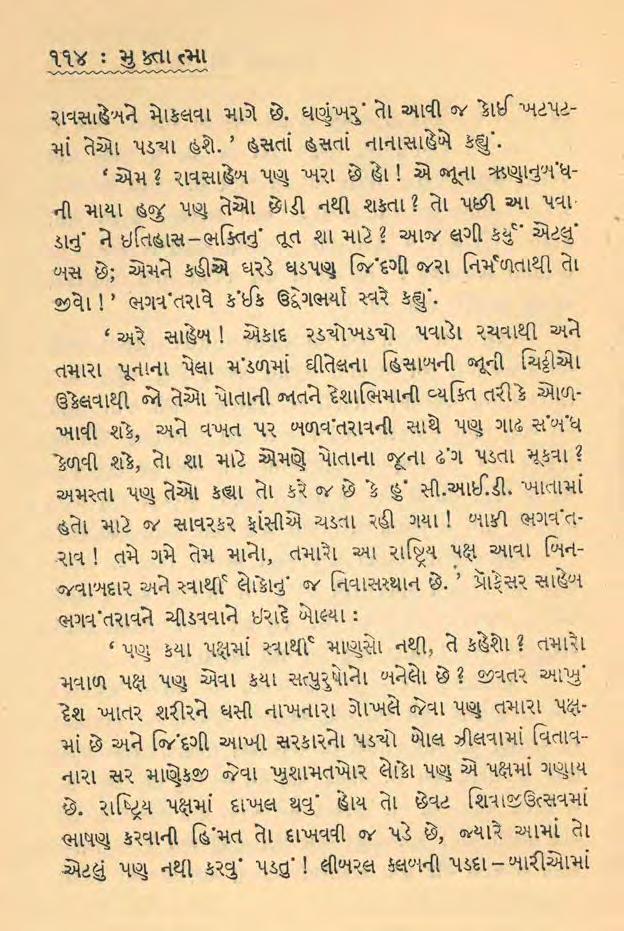 ૧૧૪ : મુ ક્તા ત્મા
રાવસાહેબને મોકલવા માગે છે. ઘણુંખરું તો આવી જ કોઈ ખટપટ-
માં તેઓ પડ્યા હશે. ’ હસતાં હસતાં નાનાસાહેબે કહ્યું.
‘ એમ ? રાવસાહેબ પણ ખરા છે હો ! એ જૂના ઋણાનુબંધ-
ની માયા હજુ પણ તેઓ છોડી નથી શકતા ? તો પછી આ પવા-
ડાનું ને ઇતિહાસ–ભક્તિનું તૂત શા માટે ? આજ લગી કર્યું એટલું
બસ છે; એમને કહીએ ઘરડે ઘડપણ જિંદગી જરા નિર્મળતાથી તો
જીવો ! ’ ભગવંતરાવે કંઈક ઉદ્વેગભર્યા સ્વરે કહ્યું.
‘ અરે સાહેબ ! એકાદ રડ્યોખડ્યો પવાડો રચવાથી અને
તમારા પૂનાના પેલા મંડળમાં ઘીતેલના હિસાબની જૂની ચિઠ્ઠીઓ
ઉકેલવાથી જો તેઓ પોતાની જાતને દેશાભિમાની વ્યક્તિ તરીકે ઓળ-
ખાવી શકે, અને વખત પર બળવંતરાવની સાથે પણ ગાઢ સંબંધ
કેળવી શકે, તો શા માટે એમણે પોતાના જૂના ઢંગ પડતા મૂકવા ?
અમસ્તા પણ તેઓ કહ્યા તો કરે જ છે કે હું સી.આઈ.ડી. ખાતામાં
હતો માટે જ સાવરકર ફાંસીએ ચડતા રહી ગયા ! બાકી ભગવંત-
રાવ ! તમે ગમે તેમ માનો, તમારો આ રાષ્ટ્રિય પક્ષ આવા બિન-
જવાબદાર અને સ્વાર્થી લોકોનું જ નિવાસસ્થાન છે. ’ પ્રૉફેસર સાહેબ
ભગવંતરાવને ચીડવવાને ઇરાદે બોલ્યા :
‘ પણ કયા પક્ષમાં સ્વાર્થી માણસો નથી, તે કહેશો ? તમારો
મવાળ પક્ષ પણ એવા કયા સત્પુરુષોનો બનેલો છે ? જીવતર આખું
દેશ ખાતર શરીરને ઘસી નાખનારા ગોખલે જેવા પણ તમારા પક્ષ-
માં છે અને જિંદગી આખી સરકારનો પડ્યો બોલ ઝીલવામાં વિતાવ-
નારા સર માણેકજી જેવા ખુશામતખોર લોકો પણ એ પક્ષમાં ગણાય
છે. રાષ્ટ્રિય પક્ષમાં દાખલ થવું હોય તો છેવટ શિવાજીઉત્સવમાં
ભાષણ કરવાની હિંમત તો દાખવવી જ પડે છે, જ્યારે આમાં તો
એટલું પણ નથી કરવું પડતું ! લીબરલ ક્લબની પડદા – બારીઓમાં